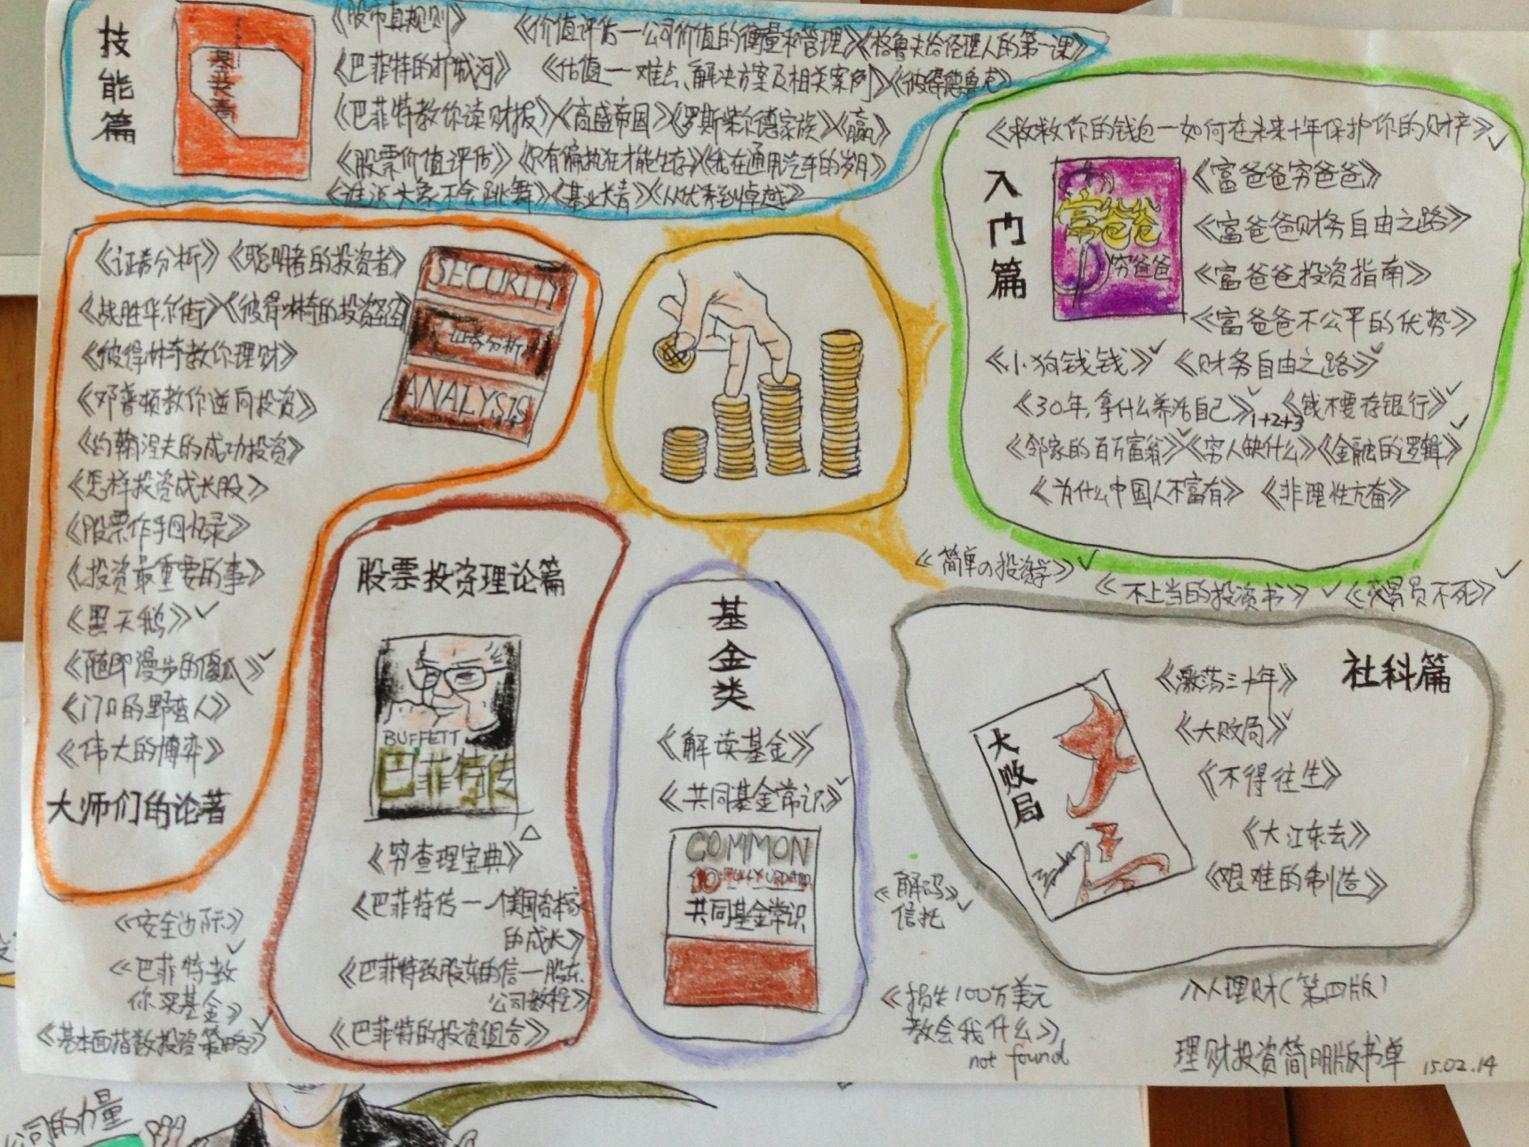 技能篇
《股市真规则》
《价值评估—公司价值的衡量和管理》《格鲁夫给经理人的第一课》
《巴菲特的护城河》
《估值——难点、解决方案及相关案例》《彼得德鲁克》
《巴菲特教你读财报》《高盛帝国》《罗斯柴尔德家族》《赢》
《股票价值评估》《只有偏执狂才能生存》《我在通用汽车的岁月》
《谁说大象不会跳舞》《基业长青》《从优秀到卓越》
入门篇
富爸爸
穷爸爸
《救救你的钱包—如何在未来十年保护你的财产》✓
《富爸爸穷爸爸》
《富爸爸财务自由之路》
《富爸爸投资指南》
《富爸爸不公平的优势》
《小狗钱钱》✓ 《财务自由之路》✓
《30年,拿什么养活自己》✓ 1+2+3 《钱不要存银行》✓
《邻家的百万富翁》✓《穷人缺什么》《金融的逻辑》✓
《为什么中国人不富有》 《非理性亢奋》
《简单の投资学》✓
《不上当的投资书》✓ 《交易员不死》✓
《证券分析》《聪明者的投资者》
《战胜华尔街》《彼得林奇的投资》
《彼得林奇教你理财》
《邓普顿教你逆向投资》
《约翰涅夫的成功投资》
《怎样投资成长股》
《股票作手回忆录》
《投资最重要的事》
《黑天鹅》✓
《随即漫步的傻瓜》✓
《门口的野蛮人》
《伟大的博弈》
大师们的论著
SECURITY
证券分析
ANALYSIS
《安全边际》
《巴菲特教
你买基金》✓
《基本面指数投资策略》✓
股票投资理论篇
BUFFETT
巴菲特传
《穷查理宝典》△
《巴菲特传—一个美国资本家
的成长》
《巴菲特致股东的信—股东
公司教程》
《巴菲特的投资组合》
基金类
《解读基金》✓
《共同基金常识》✓
COMMON
10 FULLY UPDATED
共同基金常识
社科篇
大败局
《激荡三十年》
《大败局》✓
《不得往生》
《大江东去》
《艰难的制造》
《解码
信托》✓
《损失100万美元
教会我什么》
not found
入人理财(第四版)
理财投资简明版书单 15.02.14
公司的力量